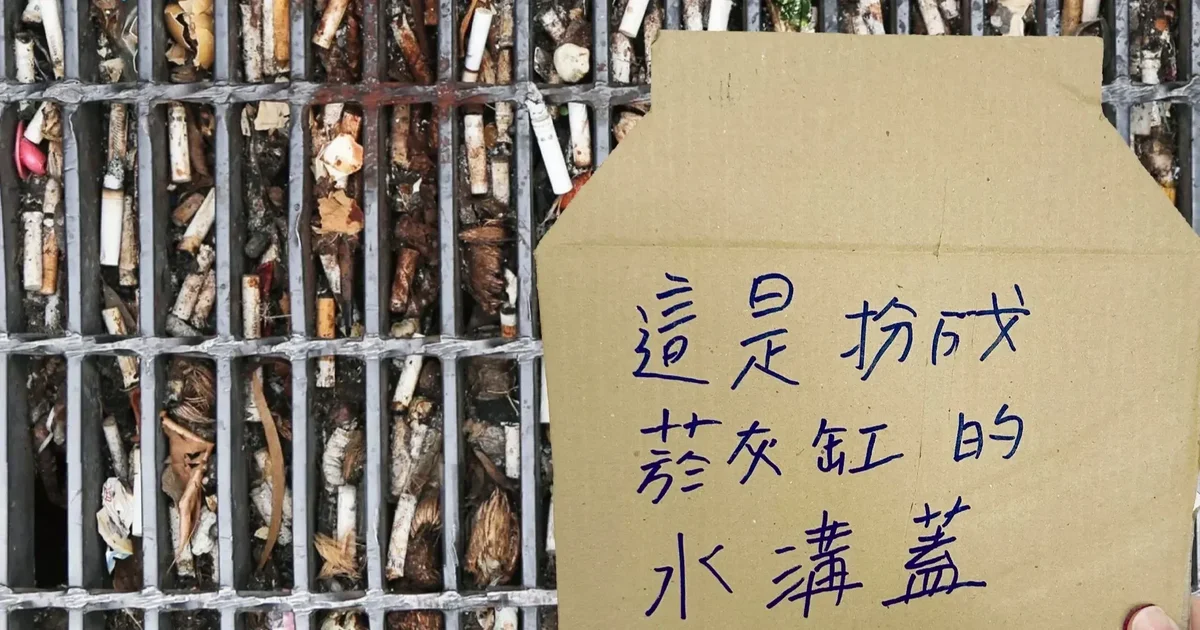 這是扮成
菸灰缸的
水溝蓋